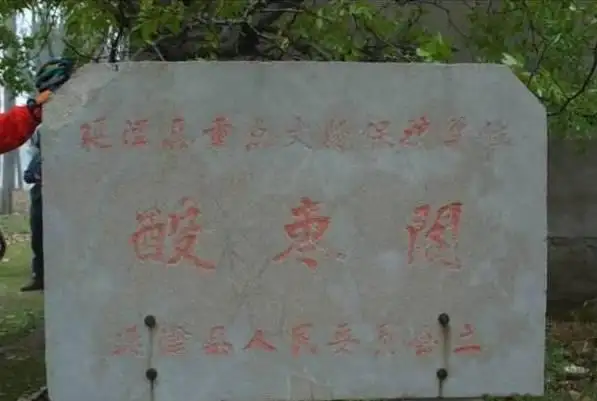 延津县重点文物保护单位
酸枣阁
延津县人民委员会立